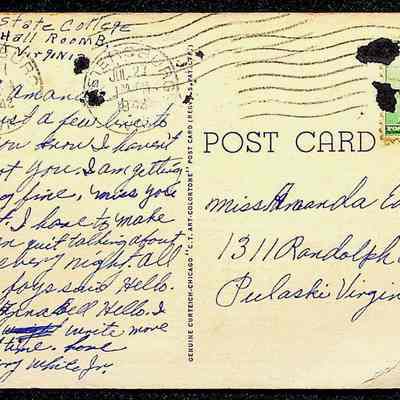 State College
Hall Room B.
Virginia
JUL 27
Amanda
Just a few lines to
you know I haven't
got You. I am getting
g fine, miss you
t. I have to make
n quit talking about
every night. All
boys said Hello.
Hello. I
write more
time. Love
White Jr.
POST CARD
GENUINE CURTEICH-CHICAGO "C.T. ART-COLORTONE" POST CARD (REG. U.S. PAT. OFF.)
Miss Amanda
1311 Randolph
Pulaski Virgin